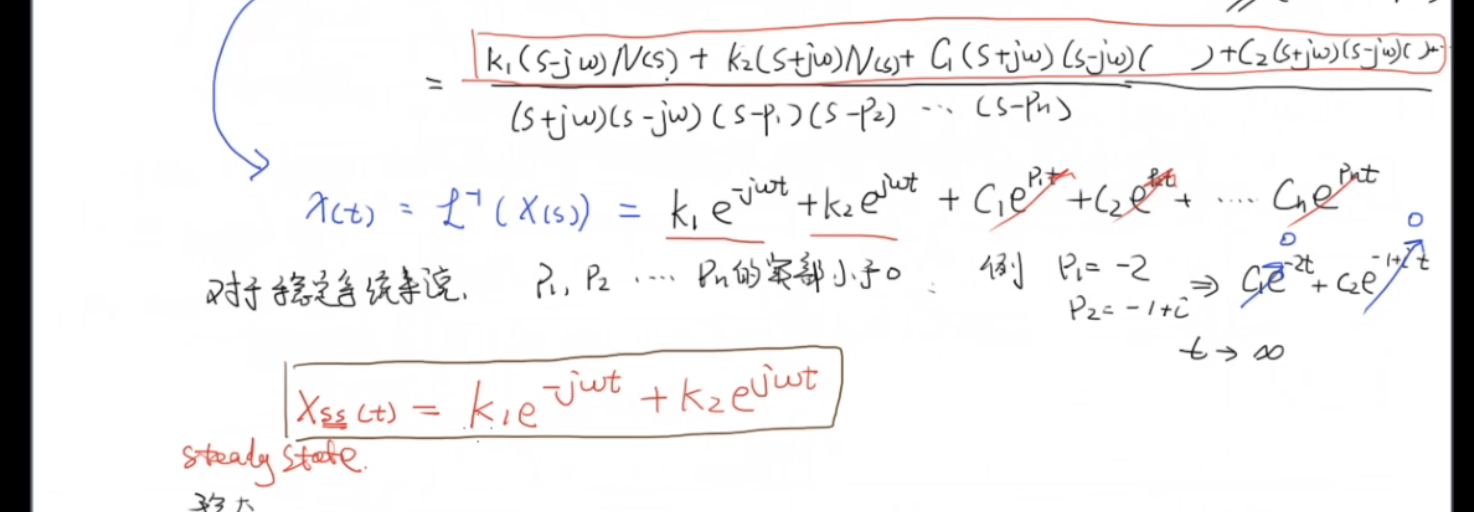 k₁(s-jω)N(s) + k₂(s+jω)N(s) + C₁(s+jω)(s-jω)( ) + C₂(s+jω)(s-jω)( )+
=
(s+jω)(s-jω)(s-p₁)(s-p₂) ... (s-pₙ)
x(t) = ℒ⁻¹(X(s)) = k₁e^{-jωt} + k₂e^{jωt} + C₁e^{p₁t} + C₂e^{p₂t} + .... Cₙe^{pₙt}
0 0
对于稳定系统来说, P₁, P₂ .... Pₙ的实部小于0. 例 P₁ = -2 ⇒ C₁e^{-2t} + C₂e^{-1+i t}
P₂ = -1+i
t → ∞
X_{ss}(t) = k₁e^{-jωt} + k₂e^{jωt}
steady state.